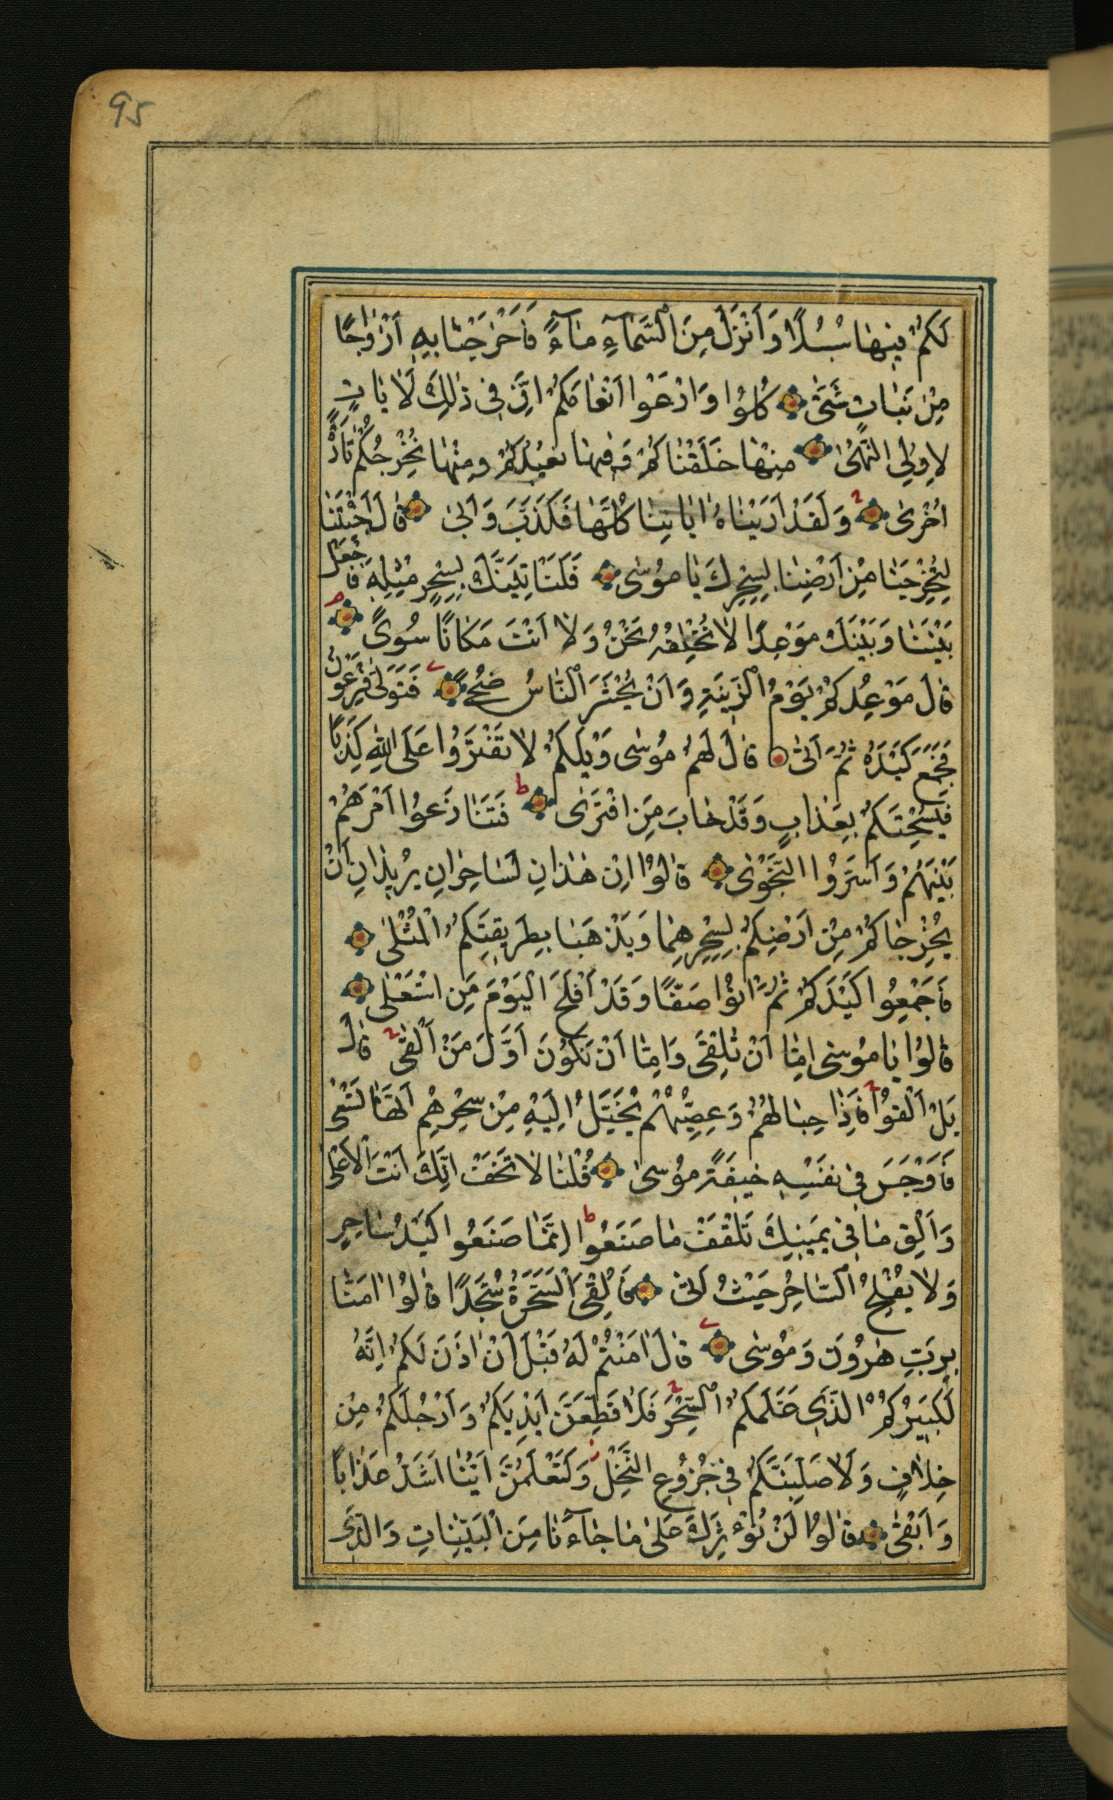 95
لَكُمْ فِيهَا سُبُلًا وَاَنْزَلَ مِنَ السَّمَاءِ مَاءً فَاَخْرَجْنَا بِهِ اَزْوَاجًا
مِنْ نَبَاتٍ شَتّٰى كُلُوا وَارْعَوْا اَنْعَامَكُمْ اِنَّ فِي ذٰلِكَ لَاٰيَاتٍ
لِاُولِي النُّهٰى مِنْهَا خَلَقْنَاكُمْ وَفِيهَا نُعِيْدُكُمْ وَمِنْهَا نُخْرِجُكُمْ تَارَةً
اُخْرٰى وَلَقَدْ اَرَيْنَاهُ اٰيَاتِنَا كُلَّهَا فَكَذَّبَ وَاَبٰى قَالَ اَجِئْتَنَا
لِتُخْرِجَنَا مِنْ اَرْضِنَا بِسِحْرِكَ يَا مُوسٰى فَلَنَاْتِيَنَّكَ بِسِحْرٍ مِثْلِهِ فَاجْعَلْ
بَيْنَنَا وَبَيْنَكَ مَوْعِدًا لَا نُخْلِفُهُ نَحْنُ وَلَا اَنْتَ مَكَانًا سُوًى
قَالَ مَوْعِدُكُمْ يَوْمُ الزِّينَةِ وَاَنْ يُحْشَرَ النَّاسُ ضُحًى فَتَوَلّٰى فِرْعَوْنُ
فَجَمَعَ كَيْدَهُ ثُمَّ اَتٰى قَالَ لَهُمْ مُوسٰى وَيْلَكُمْ لَا تَفْتَرُوا عَلَى اللّٰهِ كَذِبًا
فَيُسْحِتَكُمْ بِعَذَابٍ وَقَدْ خَابَ مَنِ افْتَرٰى فَتَنَازَعُوا اَمْرَهُمْ
بَيْنَهُمْ وَاَسَرُّوا النَّجْوٰى قَالُوْا اِنْ هٰذَانِ لَسَاحِرَانِ يُرِيْدَانِ اَنْ
يُخْرِجَاكُمْ مِنْ اَرْضِكُمْ بِسِحْرِهِمَا وَيَذْهَبَا بِطَرِيقَتِكُمُ الْمُثْلٰى
فَاَجْمِعُوا كَيْدَكُمْ ثُمَّ ائْتُوْا صَفًّا وَقَدْ اَفْلَحَ الْيَوْمَ مَنِ اسْتَعْلٰى
قَالُوْا يَا مُوسٰى اِمَّا اَنْ تُلْقِيَ وَاِمَّا اَنْ نَكُونَ اَوَّلَ مَنْ اَلْقٰى قَالَ
بَلْ اَلْقُوْا فَاِذَا حِبَالُهُمْ وَعِصِيُّهُمْ يُخَيَّلُ اِلَيْهِ مِنْ سِحْرِهِمْ اَنَّهَا تَسْعٰى
فَاَوْجَسَ فِي نَفْسِهِ خِيفَةً مُوسٰى قُلْنَا لَا تَخَفْ اِنَّكَ اَنْتَ الْاَعْلٰى
وَاَلْقِ مَا فِي يَمِينِكَ تَلْقَفْ مَا صَنَعُوا اِنَّمَا صَنَعُوا كَيْدُ سَاحِرٍ
وَلَا يُفْلِحُ السَّاحِرُ حَيْثُ اَتٰى فَاُلْقِيَ السَّحَرَةُ سُجَّدًا قَالُوْا اٰمَنَّا
بِرَبِّ هٰرُونَ وَمُوسٰى قَالَ اٰمَنْتُمْ لَهُ قَبْلَ اَنْ اٰذَنَ لَكُمْ اِنَّهُ
لَكَبِيْرُكُمُ الَّذِي عَلَّمَكُمُ السِّحْرَ فَلَاُقَطِّعَنَّ اَيْدِيَكُمْ وَاَرْجُلَكُمْ مِنْ
خِلَافٍ وَلَاُصَلِّبَنَّكُمْ فِي جُذُوعِ النَّخْلِ وَلَتَعْلَمُنَّ اَيُّنَا اَشَدُّ عَذَابًا
وَاَبْقٰى قَالُوْا لَنْ نُؤْثِرَكَ عَلٰى مَا جَاءَنَا مِنَ الْبَيِّنَاتِ وَالَّذِي